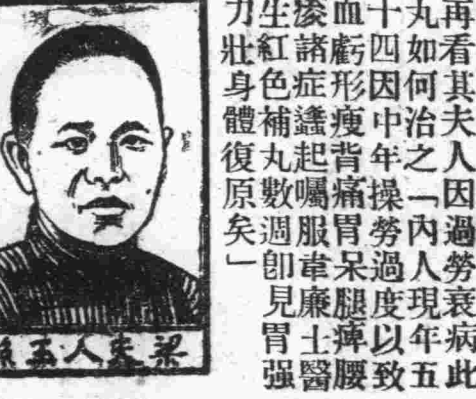 再看其夫人因過勞衰病此
丸如何治之「內人現年五
十四因中年操勞過度以致
血虧形瘦背痛胃呆腿痺腰
痠諸症蠭起囑服韋廉士醫
生紅色補丸數週卽見胃强
力壯身體復原矣」
梁夫人玉